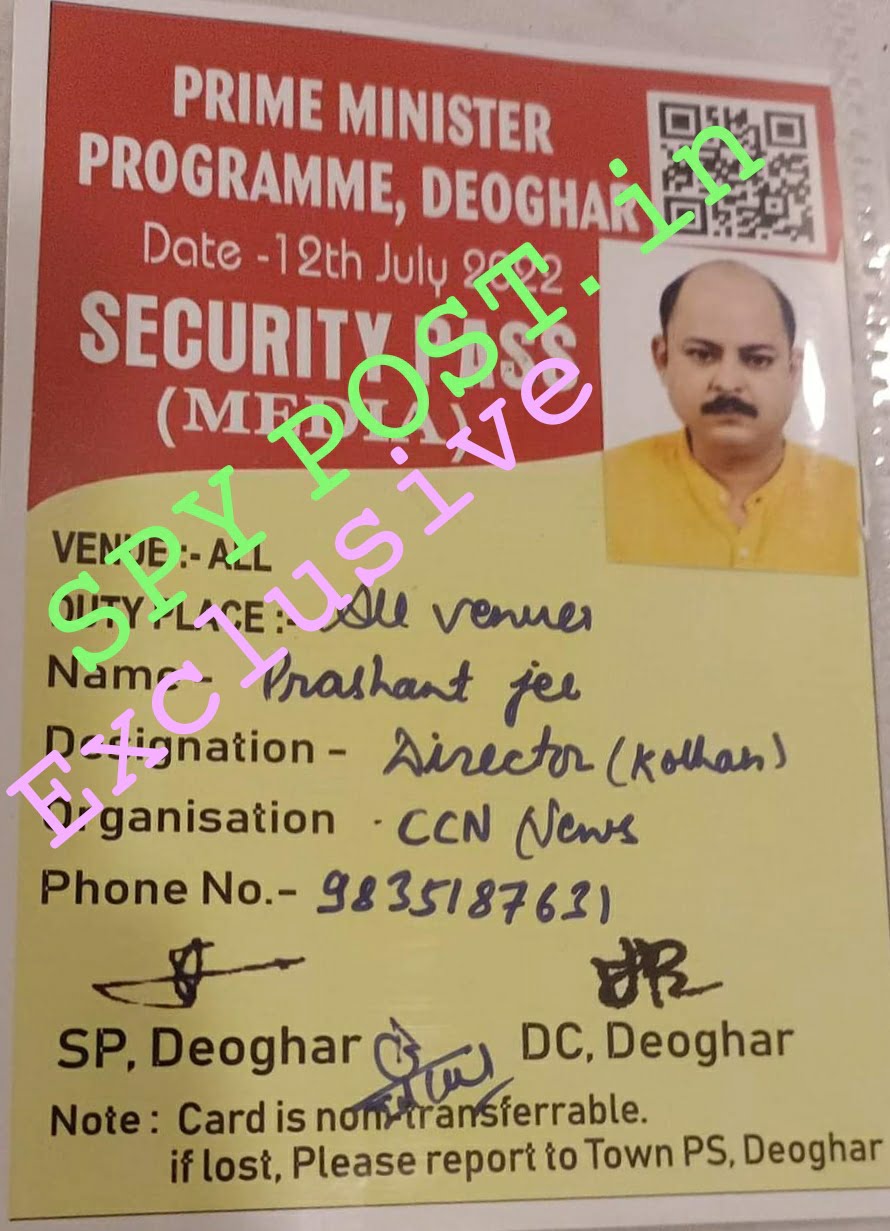 PRIME MINISTER
PROGRAMME, DEOGHAR
Date -12th July 2022
SECURITY PASS
(MEDIA)
SPY POST.in
Exclusive
VENUE:- ALL
DUTY PLACE:- All venues
Name - Prashant jee
Designation - Director (Kolhan)
Organisation - CCN News
Phone No.- 9835187631
SP, Deoghar
DC, Deoghar
Note : Card is non-transferrable.
if lost, Please report to Town PS, Deoghar